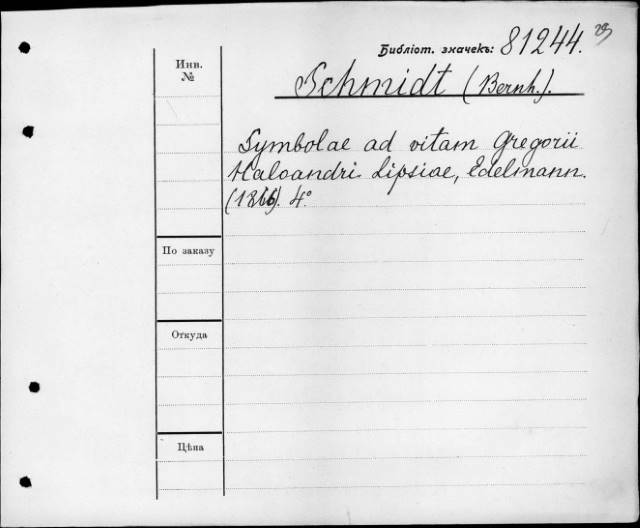 Библіот. значекъ: 81244.
Инв.
№
Schmidt (Bernh.).
Symbolae ad vitam Gregorii
Haloandri Lipsiae, Edelmann.
(1866). 4°
По заказу
Откуда
Цѣна